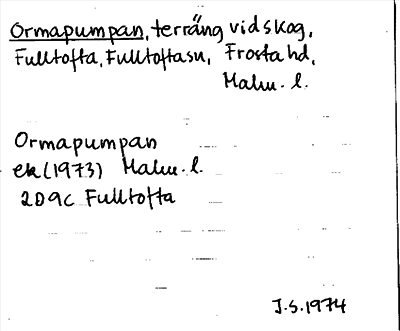 Ormapumpan, terräng vid skog,
Fulltofta, Fulltofta sn, Frosta hd,
Malm. l.
Ormapumpan
ek (1973) Malm. l.
2D9c Fulltofta
J.S. 1974